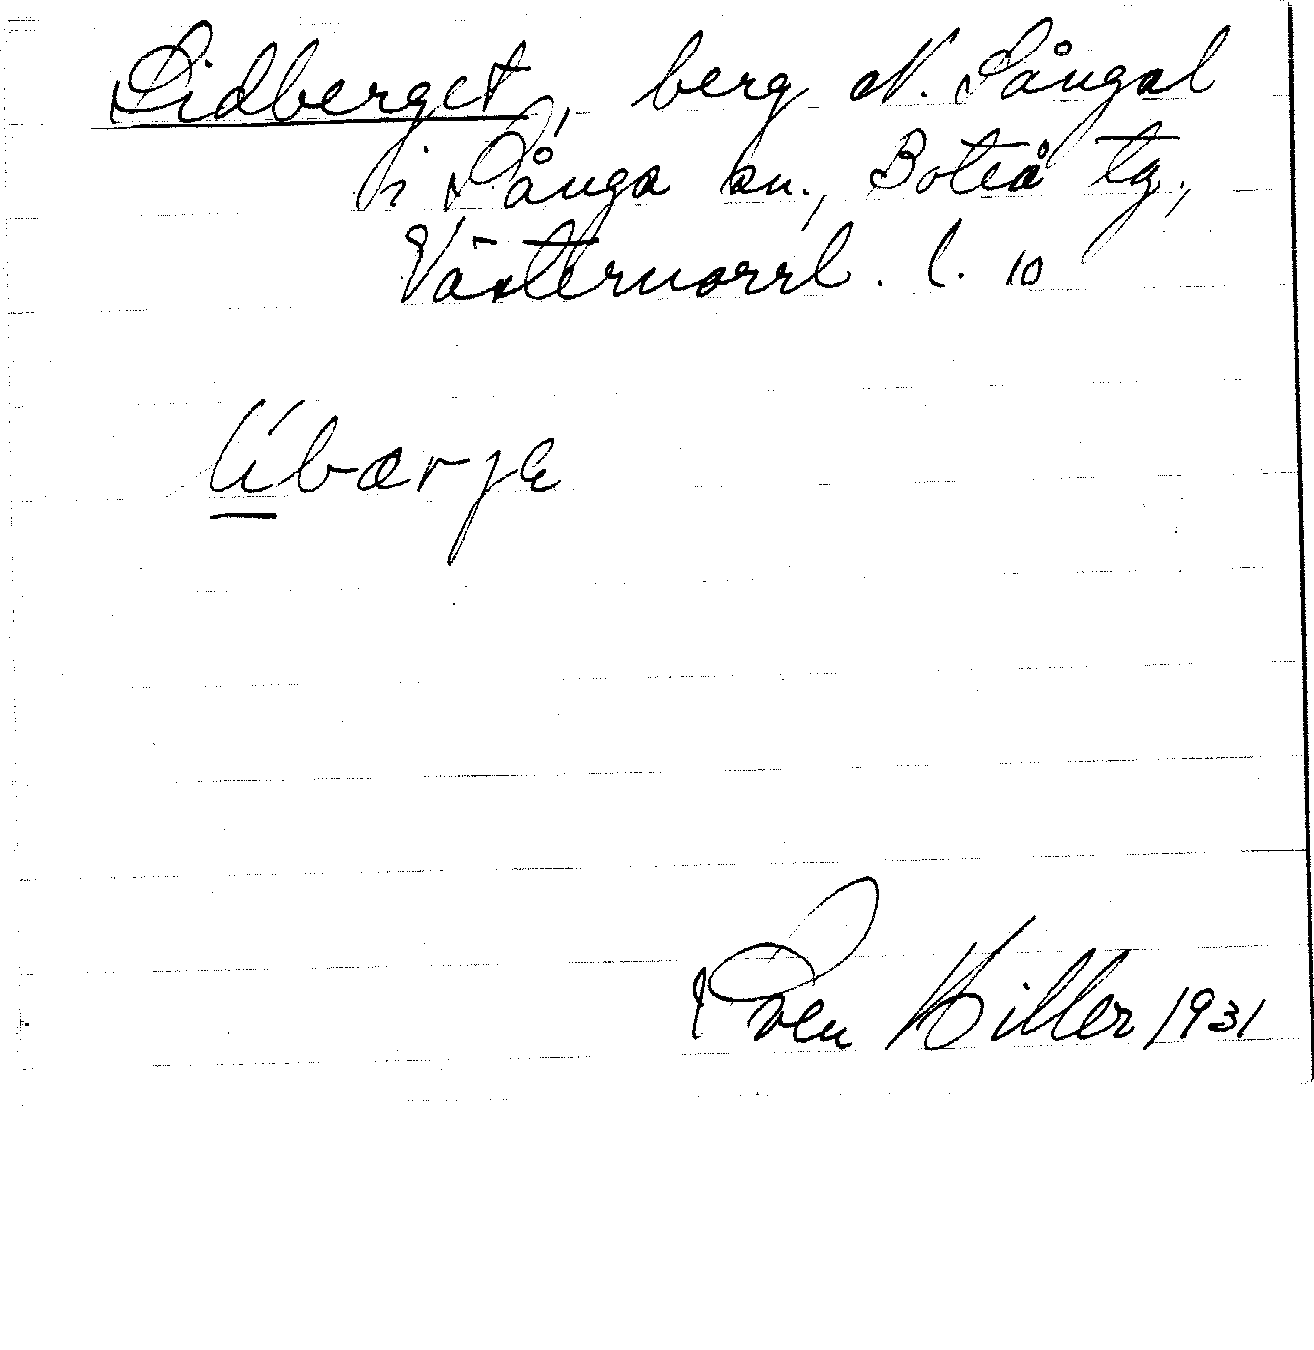 Lidberget, berg N. Sångal
i Sånga sn., Boteå tg.,
Västernorrl. l. 10
líbærjɛ
Sven Hiller 1931